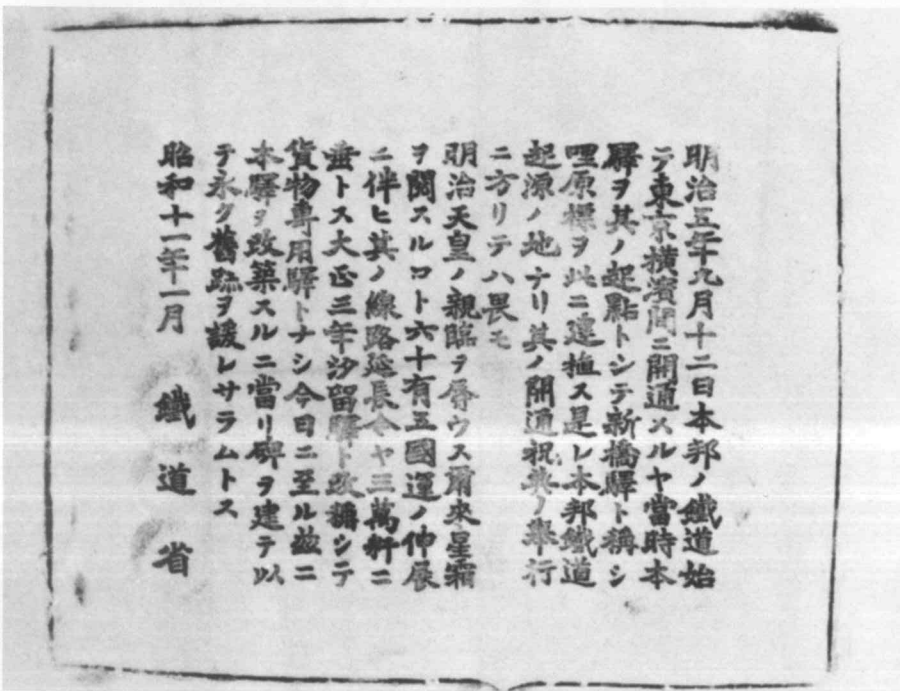 明治五年九月十二日本邦ノ鐵道始
テ東京横濱間ニ開通スルヤ當時本
驛ヲ其ノ起點トシテ新橋驛ト稱シ
哩原標ヲ此ニ建植ス是レ本邦鐵道
起源ノ地ナリ其ノ開通祝典ノ擧行
ニ方リテハ畏モ
明治天皇ノ親臨ヲ辱ウス爾來星霜
ヲ閲スルコト六十有五國運ノ伸展
ニ伴ヒ其ノ線路延長今ヤ三萬粁ニ
垂トス大正三年汐留驛ト改稱シテ
貨物專用驛トナシ今日ニ至ル茲ニ
本驛ヲ改築スルニ當リ碑ヲ建テ以
テ永ク舊跡ヲ諼レサラムトス
昭和十一年一月 鐵道省